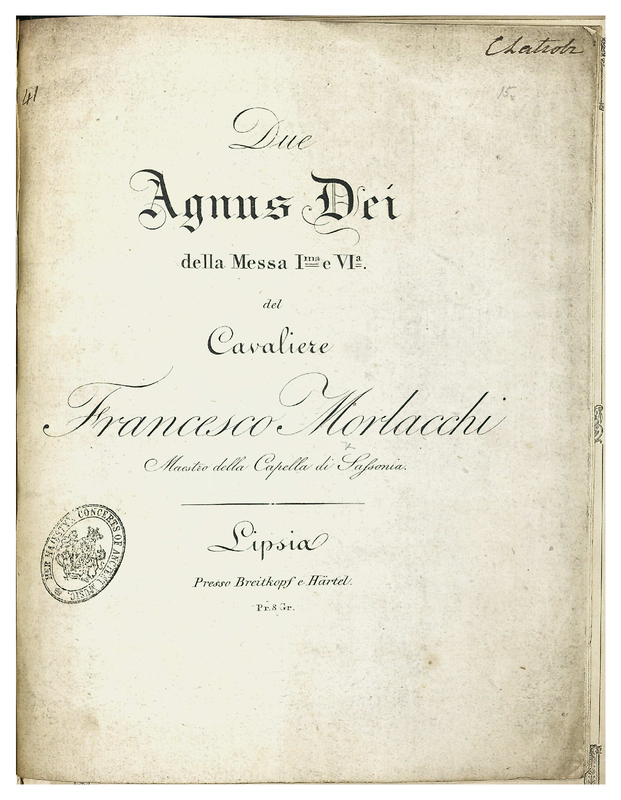 41
15.
Due
Agnus Dei
della Messa Ima e VIa.
del
Cavaliere
Francesco Morlacchi
Maestro della Capella di Saſsonia.
Lipsia
Presso Breitkopf e Härtel.
Pr. 8 Gr.
HER MAJESTY'S CONCERTS OF ANCIENT MUSIC